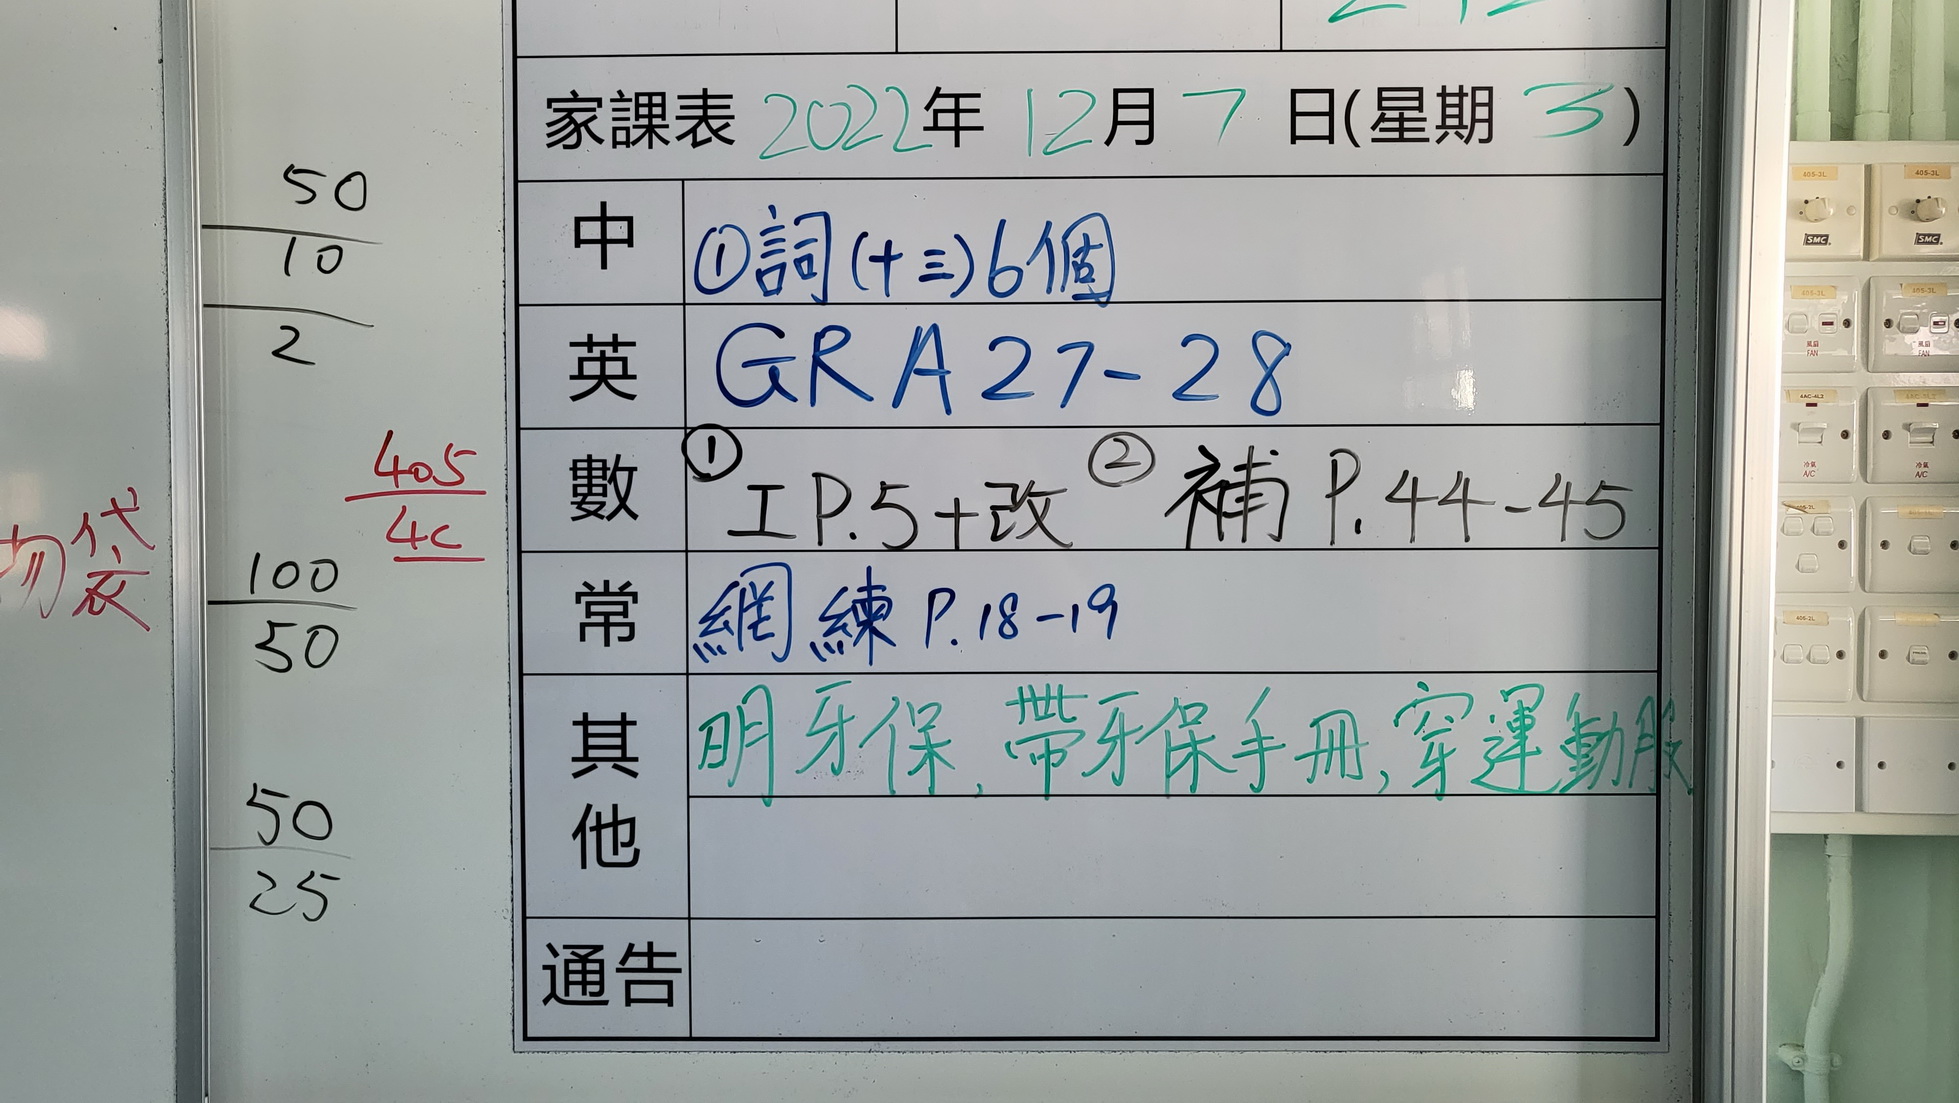 家課表 2022年 12月 7 日(星期 3)
中 ①詞(十三)6個
英 GRA 27-28
數 ①工P.5+改 ②補 P.44-45
常 網練 P.18-19
其他 明牙保,帶牙保手冊,穿運動服
通告
50
10
2
405
4C
100
50
50
25
物袋
405-3L
405-3L
SMC
SMC
405-3L
405-3L
風扇
FAN
風扇
FAN
4AC-4L2
冷氣
A/C
冷氣
A/C
405-2L